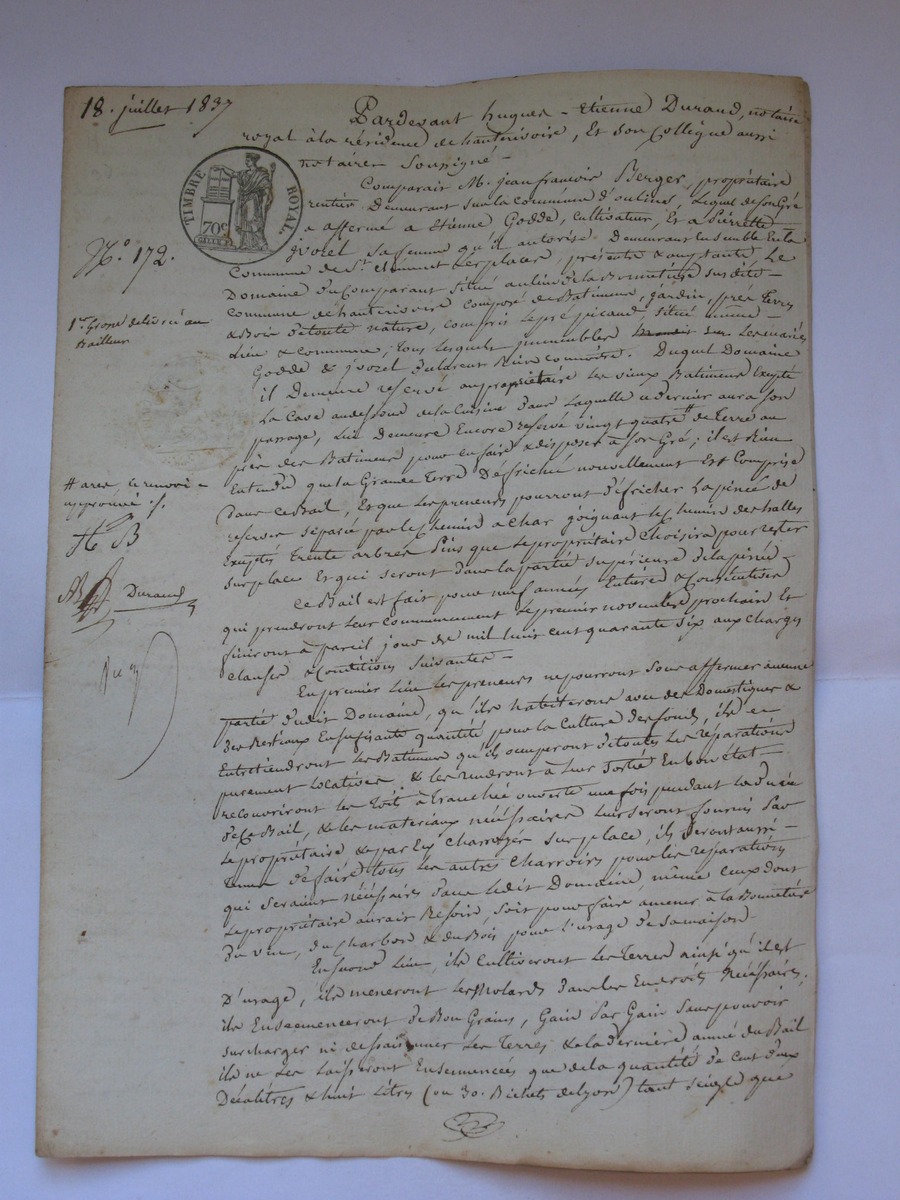 18. juillet 1837
Pardevant hugues - Etienne Durand, notaire
royal à la résidence de hauterivoire, Et son Collègue aussi
notaire Soussigné -
TIMBRE ROYAL.
70c
Comparait M. jean francois Berger, propriétaire
rentier Demeurant sur la commune d'oulines, Lequel de son Gré
a affermé a Etienne Godde, Cultivateur, Et a Pierrette
jvozel Sa femme qu'il autorise Demeurant Ensemble En la
Commune de St. Clement Les places, présents & acceptants, Le
N.o 172.
Domaine Du Comparant Situé au lieu de la Bonnetière sus dite
commune de hauterivoire composé de Batiments, jardin, prés Terres
& Bois De toute nature, compris Le pré picaud Situé même
1re Grosse delivrée au
Bailleur
Lieu & commune; tous Lesquels immeubles sur Les mariés
Godde & jvozel Déclarent Bien connoitre. Duquel Domaine
il Demeure reservé au propriétaire Les vieux Batiments Excepté
La Cave au dessous de la Cuisine Dans Laquelle ce dernier aura son
passage, Lui Demeure Encore reservé vingt quatre # de Terre au
près des Batiments pour en faire & disposer a son Gré; il est Bien
# ares, ce renvoi
approuvé ./.
Entendu que la Grande Terre Défrichée nouvellement Est Comprise
Dans ce Bail, Et que Les preneurs pourront Défricher La pinée de
reserve séparé par le chemin a Char joignant Le chemin des halles
H. B
Exceptés trente arbres Pins que Le propriétaire Choisira pour rester
sur place Et qui seront Dans La partie supérieure De la pinée
Durand
Ce Bail est fait pour neuf années Entières & Consécutives
qui prendront Leur Commencement Le premier novembre prochain Et
finiront à pareil jour de mil huit cent quarante six aux charges
clauses & Conditions suivantes -
En premier Lieu Les preneurs ne pourront Sous affermer aucune
partie Dudit Domaine, qu'ils habiteront avec des Domestiques &
Des Bestiaux En suffisante quantité pour la Culture Des fonds, ils en
Entretiendront Les Batiments qu'ils occuperont De toutes Les réparations
purement Locatives & les rendront à Leur Sortie En bon état
recouvriront Les Toits à tranchée ouverte une fois pendant La Durée
De ce Bail, & les materiaux nécéssaires Leur Seront fournis Par
Le propriétaire & par Eux Charroyés sur place, ils Seront aussi
Tenus De faire tous Les autres Charrois pour les réparations
qui seraient nécéssaires Dans Ledit Domaine, même ceux Dont
Le propriétaire aurait Besoin, soit pour faire amener à La Bonnetière
Du vin, du Charbon & du Bois pour L'usage De sa maison -
En second Lieu, ils Cultiveront Les Terres ainsi qu'il est
D'usage, ils méneront Les Molards Dans les Endroits Nécéssaires,
ils Ensemenceront De Bon Grains, Gain Par Gain Sans pouvoir
surcharger ni dessaisonner Les Terres & La dernière année Du Bail
ils ne Les Laisseront Ensemencées que de la quantité De Cent Deux
Décalitres & huit Litres (ou 30. Bichets de Lyon) tant seigle que